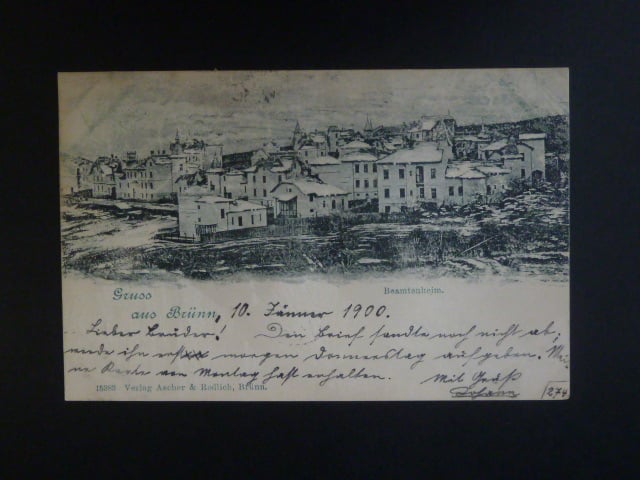 Beamtenheim.
Gruss
aus Brünn, 10. Jänner 1900.
Lieber Bruder! Den Brief sandte noch nicht ab,
werde ihn erst morgen Donnerstag aufgeben. Mei-
ne Karte von Montag hast erhalten. Mit Gruß
15385 Verlag Ascher & Redlich, Brünn. Johann
274